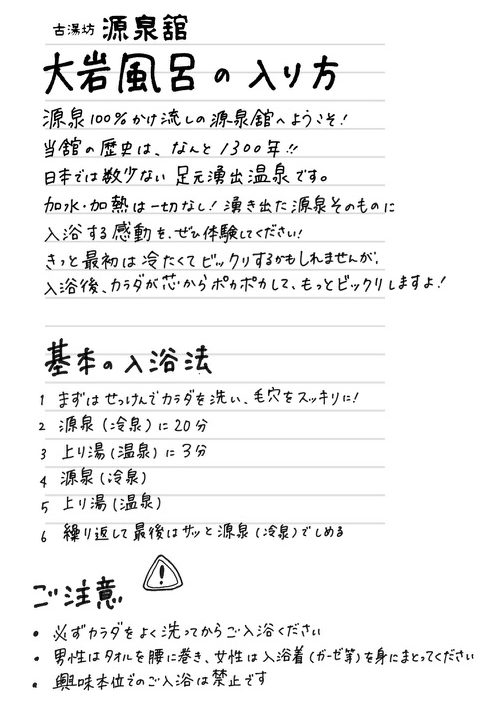 古湯坊 源泉舘
大岩風呂の入り方
源泉100%かけ流しの源泉舘へようこそ!
当舘の歴史は、なんと1300年!!
日本では数少ない足元湧出温泉です。
加水・加熱は一切なし!湧き出た源泉そのものに
入浴する感動を、ぜひ体験してください!
きっと最初は冷たくてビックリするかもしれませんが、
入浴後、カラダが芯からポカポカして、もっとビックリしますよ!
基本の入浴法
1 まずはせっけんでカラダを洗い、毛穴をスッキリに!
2 源泉(冷泉)に20分
3 上り湯(温泉)に3分
4 源泉(冷泉)
5 上り湯(温泉)
6 繰り返して最後はサッと源泉(冷泉)でしめる
ご注意
• 必ずカラダをよく洗ってからご入浴ください
• 男性はタオルを腰に巻き、女性は入浴着(ガーゼ等)を身にまとってください
• 興味本位でのご入浴は禁止です